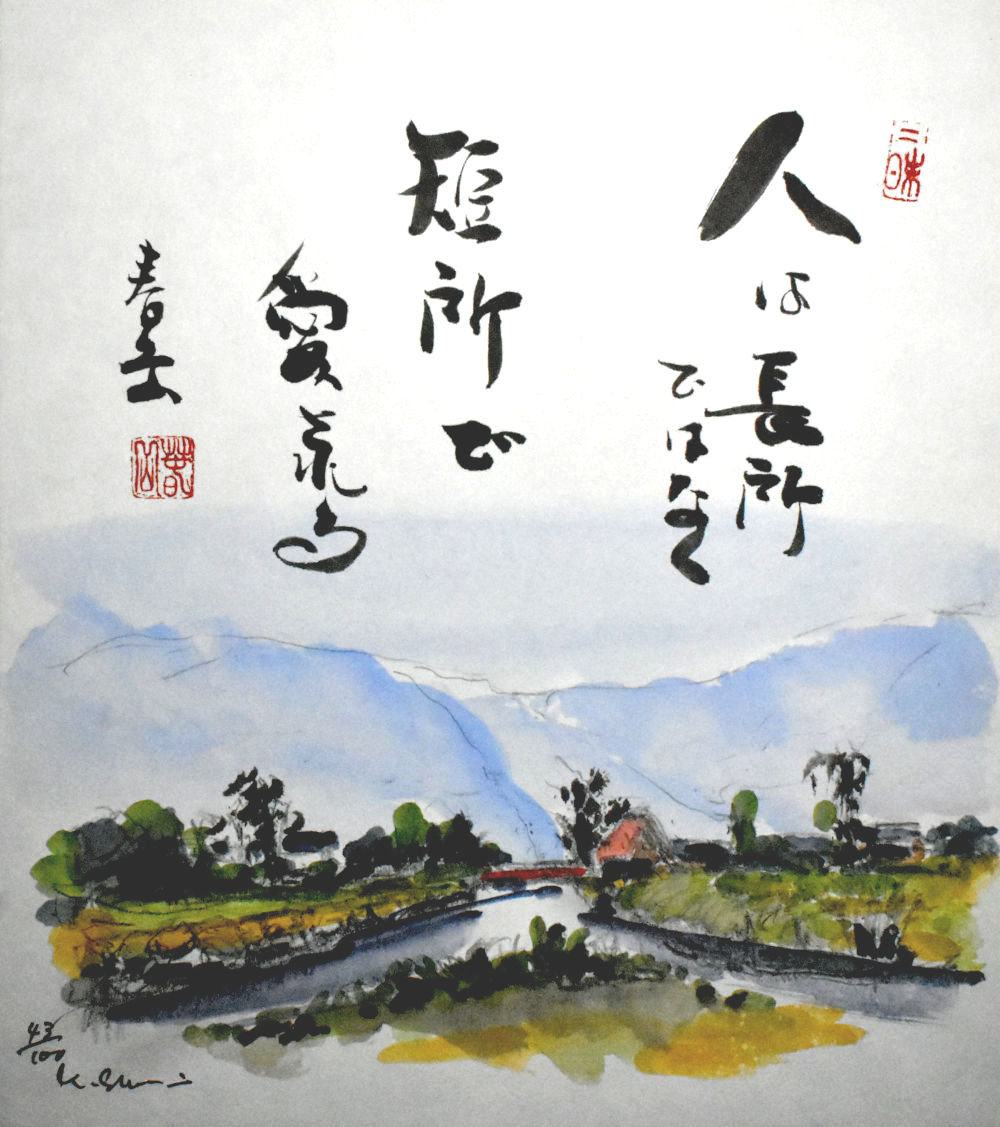 三昧
人は長所
ではなく
短所で
愛される
春岳
43/100